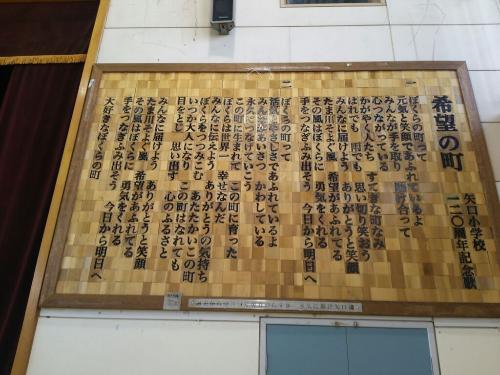 希望の町
矢口小学校
一二〇周年記念歌
一
ぼくらの町って
元気と笑顔であふれているよ
みんなが手を取り 助け合って
心つながっている
かがやく人たち すてきな町なみ
はれても 雨でも 思い切り笑おう
みんなに届けよう ありがとうと笑顔
たま川そよぐ風 希望があふれてる
その風はぼくらに 勇気をくれる
手をつなぎふみ出そう 今日から明日へ
二
ぼくらの町って
活気とやさしさであふれているよ
みんながあいさつ かわしている
永久につなげていこう
この町に生まれて この町に育った
ぼくらは世界一 幸せなんだ
みんなに伝えよう ありがとうの気持ち
ぼくらをつつみこむ あたたかいこの町
いつか大人になり この町はなれても
目をとじ 思い出す 心のふるさと
みんなに届けよう ありがとうと笑顔
たま川そよぐ風 希望があふれてる
その風はぼくらに 勇気をくれる
手をつなぎふみ出そう 今日から明日へ
大好きなぼくらの町